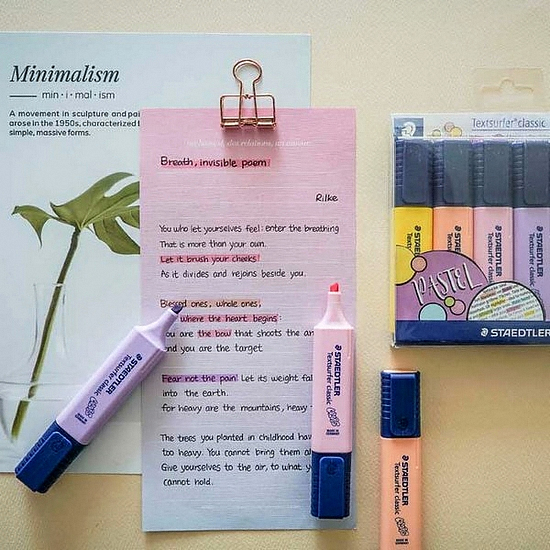 Minimalism
min · i · mal · ism
A movement in sculpture and
arose in the 1950s, characterized
simple, massive forms.
Breath, invisible poem
Rilke
You who let yourselves feel: enter the breathing
That is more than your own.
Let it brush your cheeks
As it divides and rejoins beside you.
Blessed ones, whole ones,
where the heart begins:
you are the bow that shoots the
and you are the target
Fear not the pain! Let its weight
into the earth.
for heavy are the mountains, heavy
The trees you planted in childhood
too heavy. You cannot bring them
Give yourselves to the air, to what
cannot hold.
STAEDTLER
Textsurfer classic
STAEDTLER
Textsurfer classic
STAEDTLER
Textsurfer classic
Textsurfer classic
STAEDTLER
STAEDTLER
PASTEL
STAEDTLER